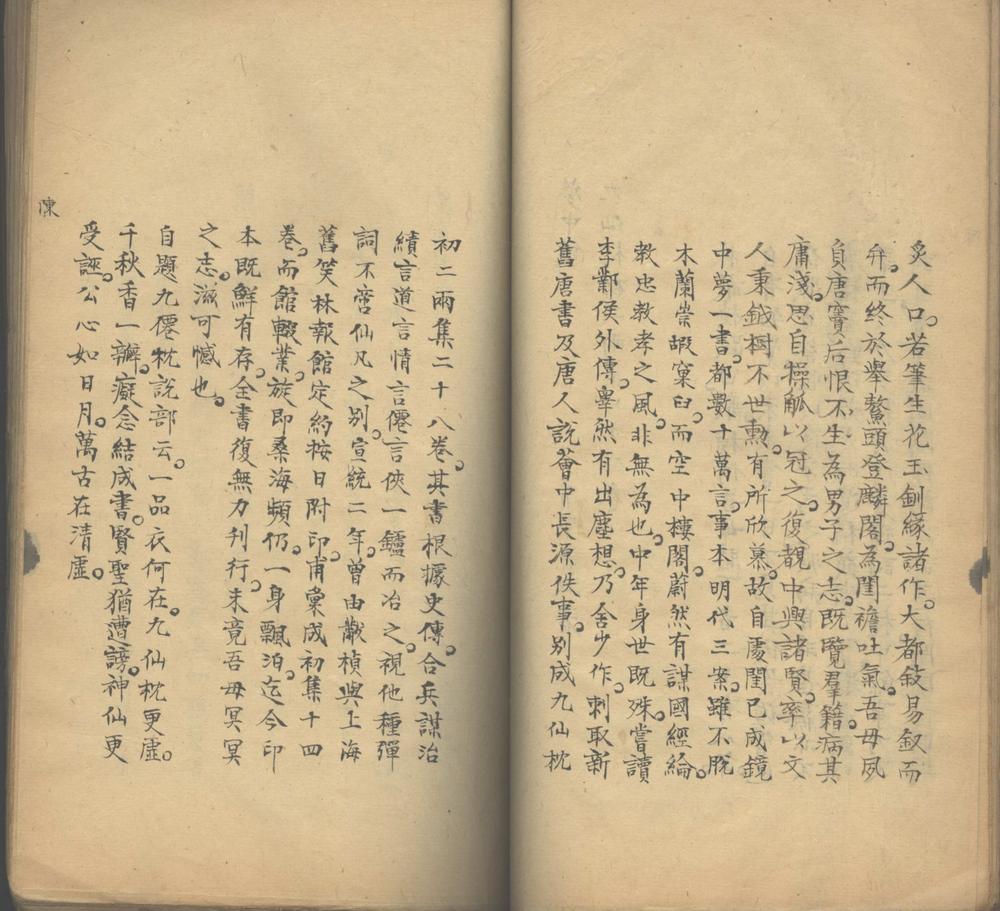 炙人口。若筆生花玉釧緣諸作。大都敍易釵而
弁。而終於舉鰲頭登麟閣。為閨襜吐氣。吾母夙
負唐竇后恨不生為男子之志。既覽羣籍。病其
庸淺。思自操觚以冠之。復覩中興諸賢。率以文
人秉鉞樹不世勲。有所欣慕。故自處閨已成鏡
中夢一書。都數十萬言。事本明代三案。雖不脫
木蘭崇嘏窠臼。而空中樓閣。蔚然有謀國經綸。
教忠教孝之風。非無為也。中年身世既殊。嘗讀
李鄴侯外傳。睾然有出塵想。乃舍少作。刺取新
舊唐書及唐人說薈中長源佚事。別成九仙枕
初二兩集二十八卷。其書根據史傳。合兵謀治
績言道言情言僊言俠一鑪而冶之。視他種彈
詞不啻仙凡之別。宣統二年。曾由戢楨與上海
舊笑林報館定約按日附印。甫彙成初集十四
卷。而館輟業。旋即桑海頻仍。一身飄泊。迄今印
本既鮮有存。全書復無力刋行。未竟吾母冥冥
之志。滋可憾也。
自題九僊枕說部云。一品衣何在。九仙枕更虛。
千秋香一瓣。癡念結成書。賢聖猶遭謗。神仙更
受誣。公心如日月。萬古在清虛。
陳